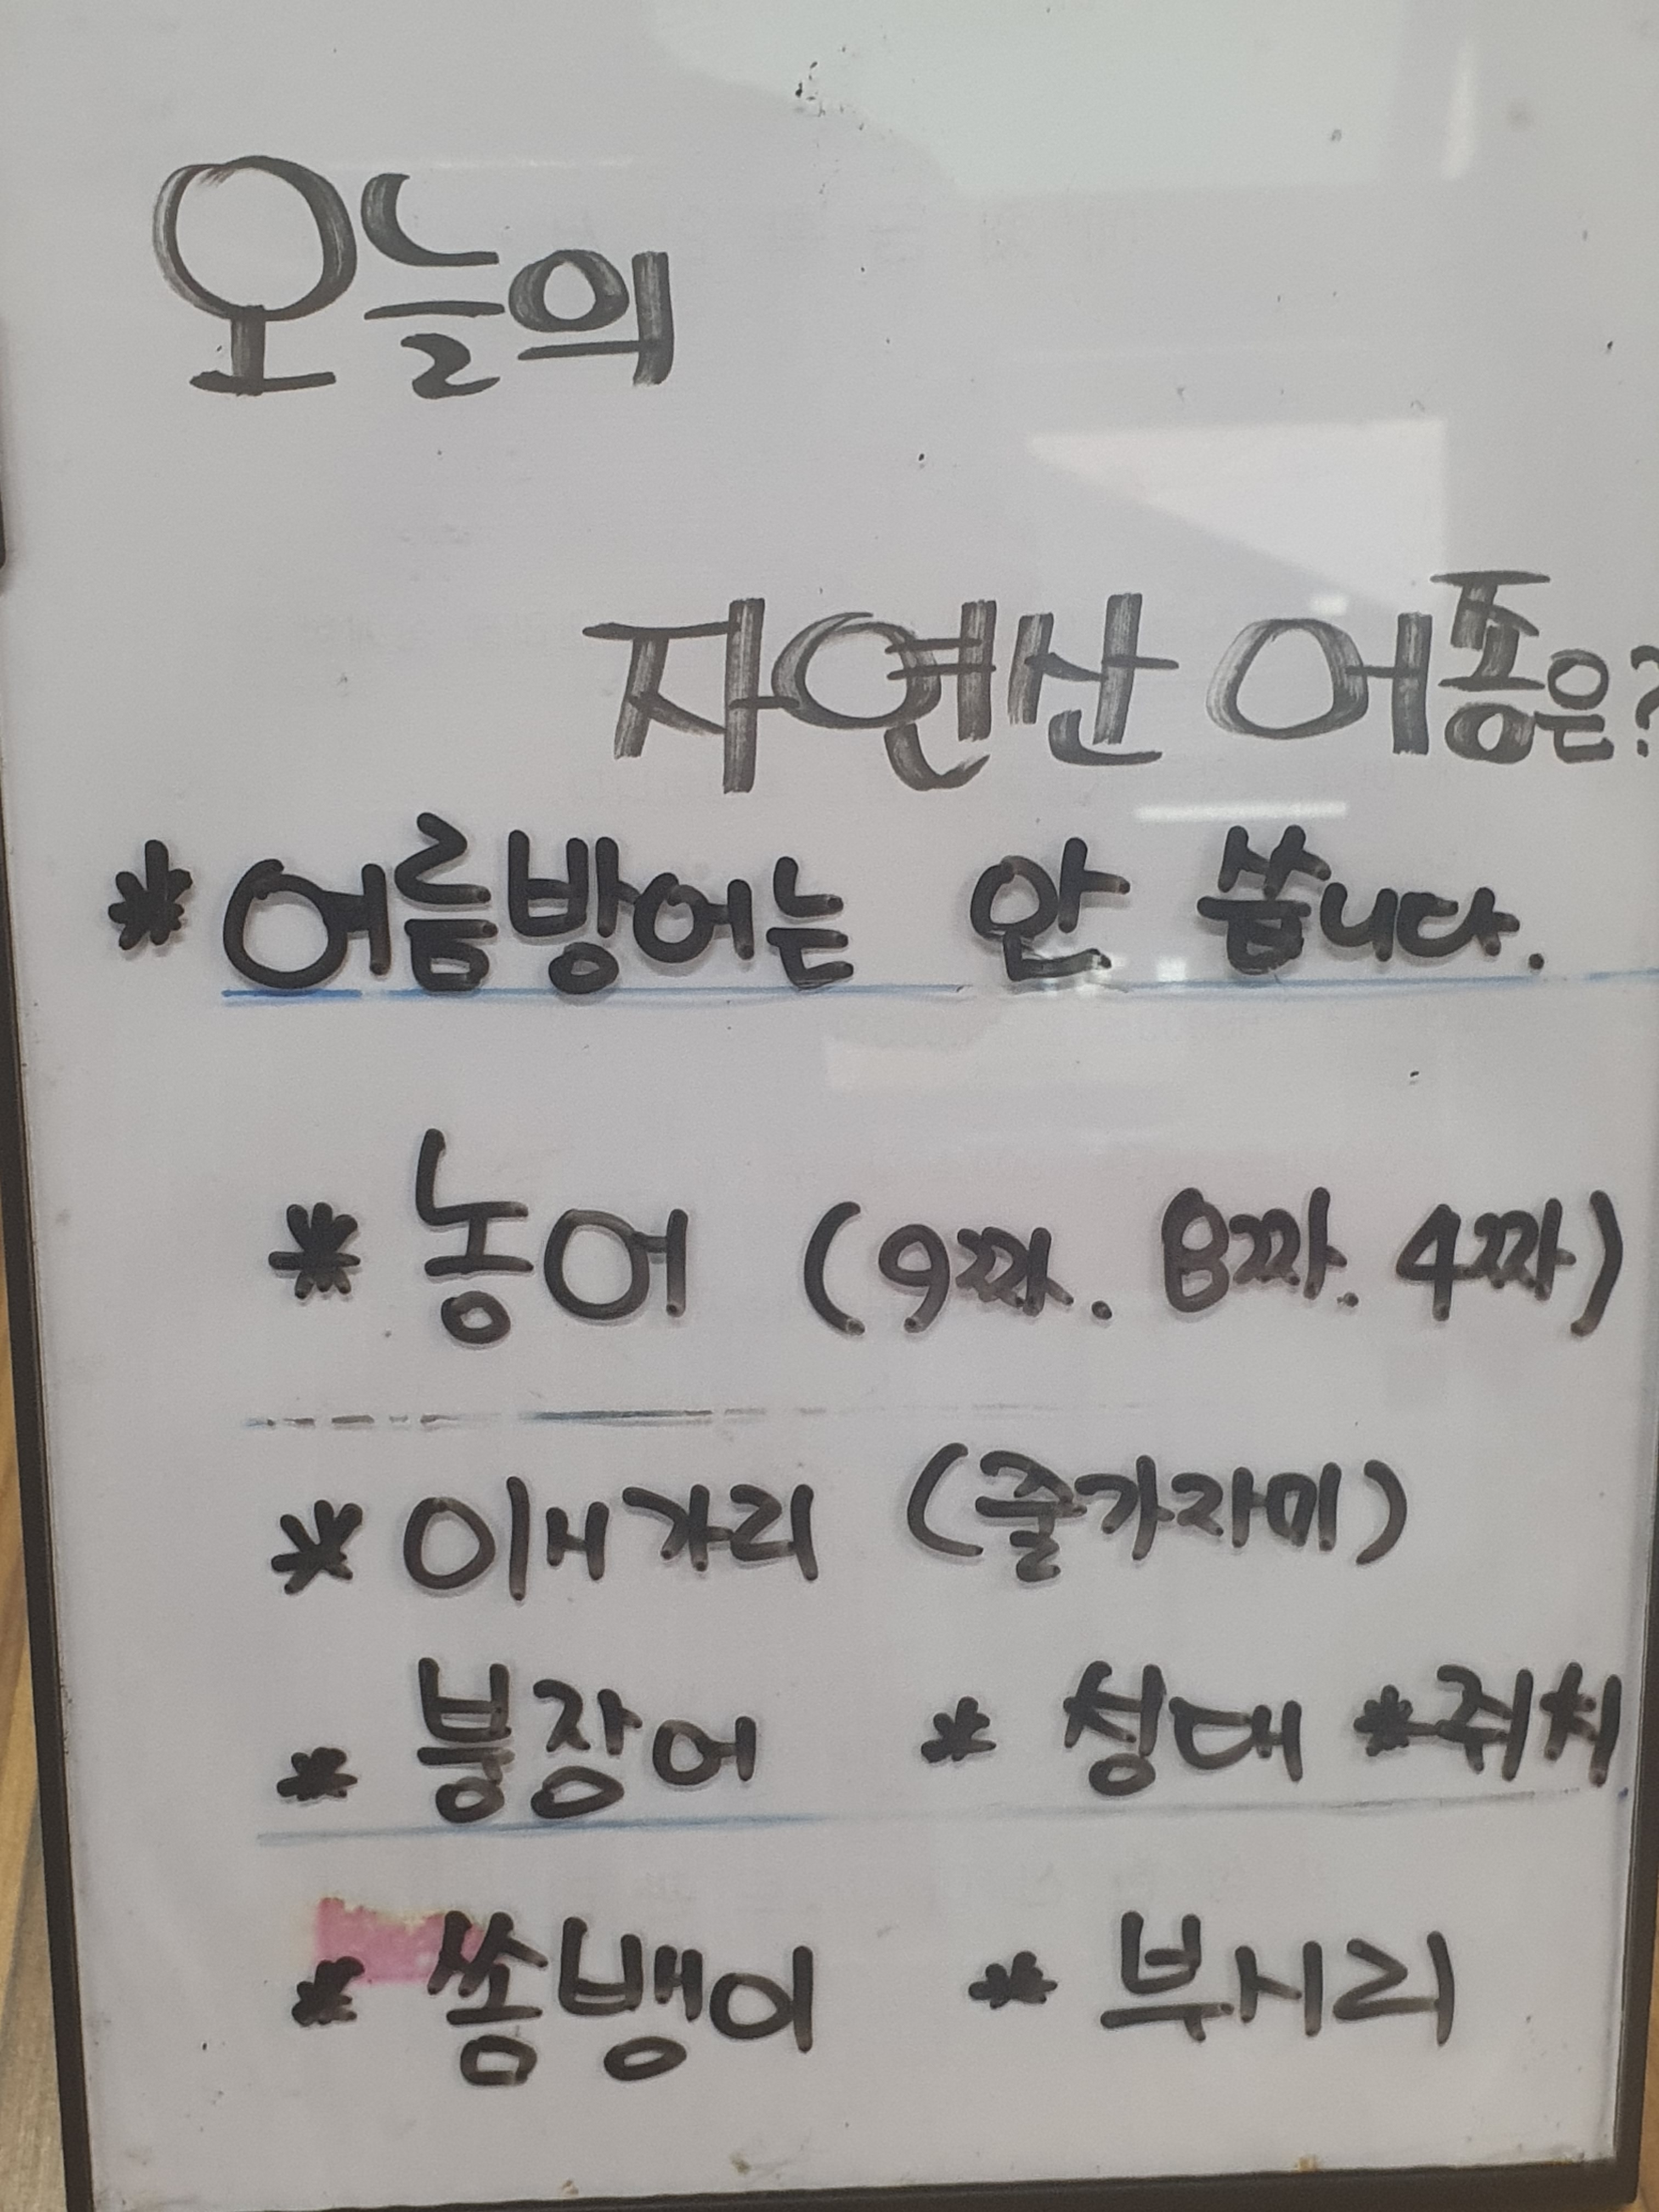 오늘의
자연산 어종은?
* 여름방어는 안 씁니다.
* 농어 (9짜. 8짜. 4짜)
* 이시가리 (줄가자미)
* 붕장어 * 성대 * 쥐치
* 쏨뱅이 * 부시리